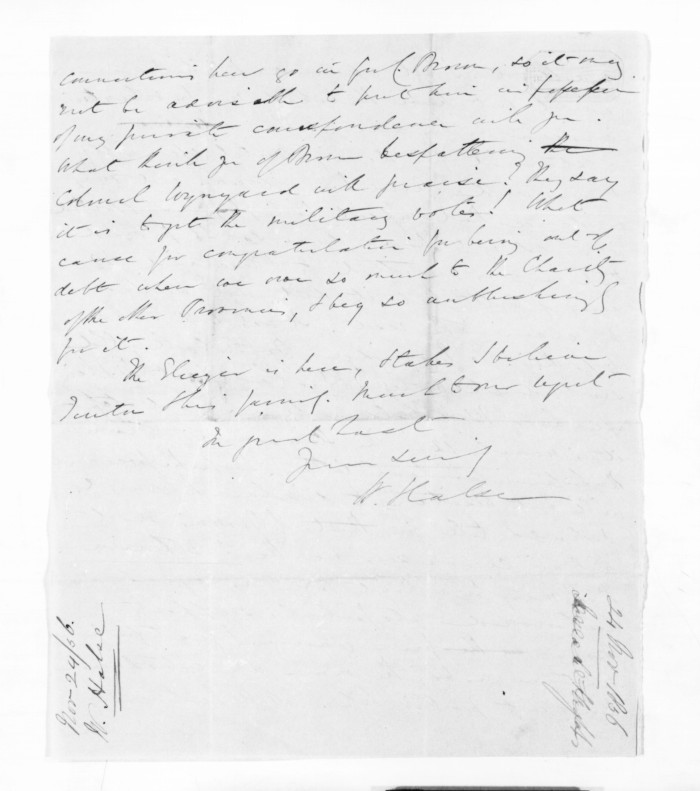 connections here go in for C. Brown, so it may
not be advisable to put him in possession
of my private correspondence with you.
What think you of Brown bespattering the
Colonel Wynyard with praise? They say
it is to get the military votes! What
cause for congratulation for being out of
debt when we owe so much to the Charity
of the other Provinces, & beg so unblushingly
for it.
The is here, & takes I believe
& his family. Much to our regret
In great haste
Yours
W. Halse
Nov 24/56.
W. Halse
24 Nov 1856